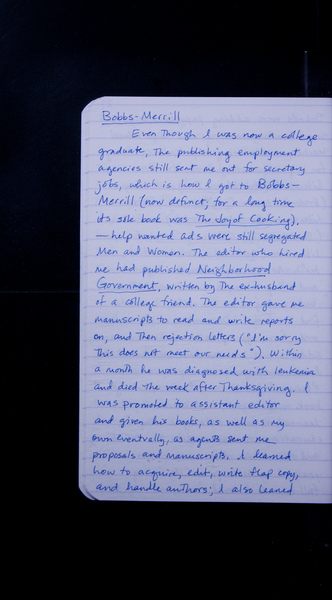 Bobbs-Merrill
Even Though I was now a college
graduate, The publishing employment
agencies still sent me out for secretary
jobs, which is how I got to Bobbs-
Merrill (now defunct, for a long time
its sole book was The Joy of Cooking).
— help wanted ads were still segregated
Men and Women. The editor who hired
me had published Neighborhood
Government, written by The ex-husband
of a college friend. The editor gave me
manuscripts to read and write reports
on, and Then rejection letters ("I'm sorry
This does not meet our needs"). Within
a month he was diagnosed with leukemia
and died The week after Thanksgiving. I
was promoted to assistant editor
and given his books, as well as my
own eventually, as agents sent me
proposals and manuscripts. I learned
how to acquire, edit, write flap copy,
and handle authors; I also leaned